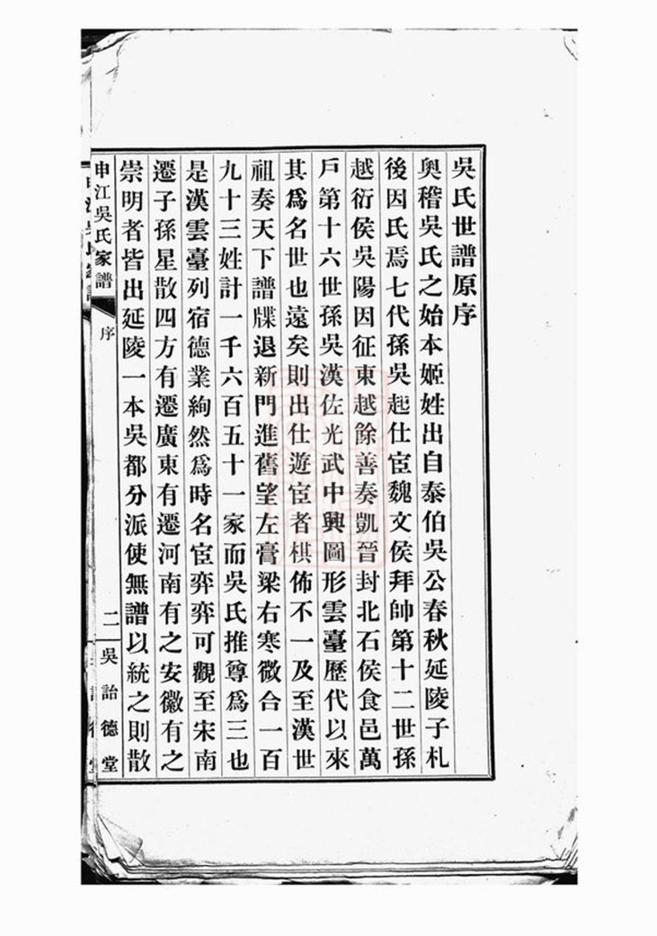 吳氏世譜原序
奧稽吳氏之始本姬姓出自泰伯吳公春秋延陵子札
後因氏焉七代孫吳起仕宦魏文侯拜帥第十二世孫
越衍侯吳陽因征東越餘善奏凱晉封北石侯食邑萬
戶第十六世孫吳漢佐光武中興圖形雲臺歷代以來
其爲名世也遠矣則出仕遊宦者棋佈不一及至漢世
祖奏天下譜牒退新門進舊望左膏梁右寒微合一百
九十三姓計一千六百五十一家而吳氏推尊爲三也
是漢雲臺列宿德業絢然爲時名宦弈弈可觀至宋南
遷子孫星散四方有遷廣東有遷河南有之安徽有之
崇明者皆出延陵一本吳都分派使無譜以統之則散
申江吳氏家譜
序
二
吳詒德堂